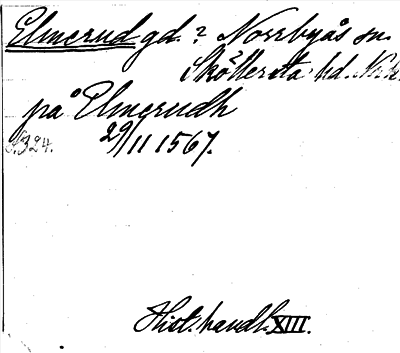 Elmerud gd.? Norrbyås sn.
Sköllersta hd. När.
på Elmerudh
S. 324. 29/11 1567.
Hist. handl. XIII.